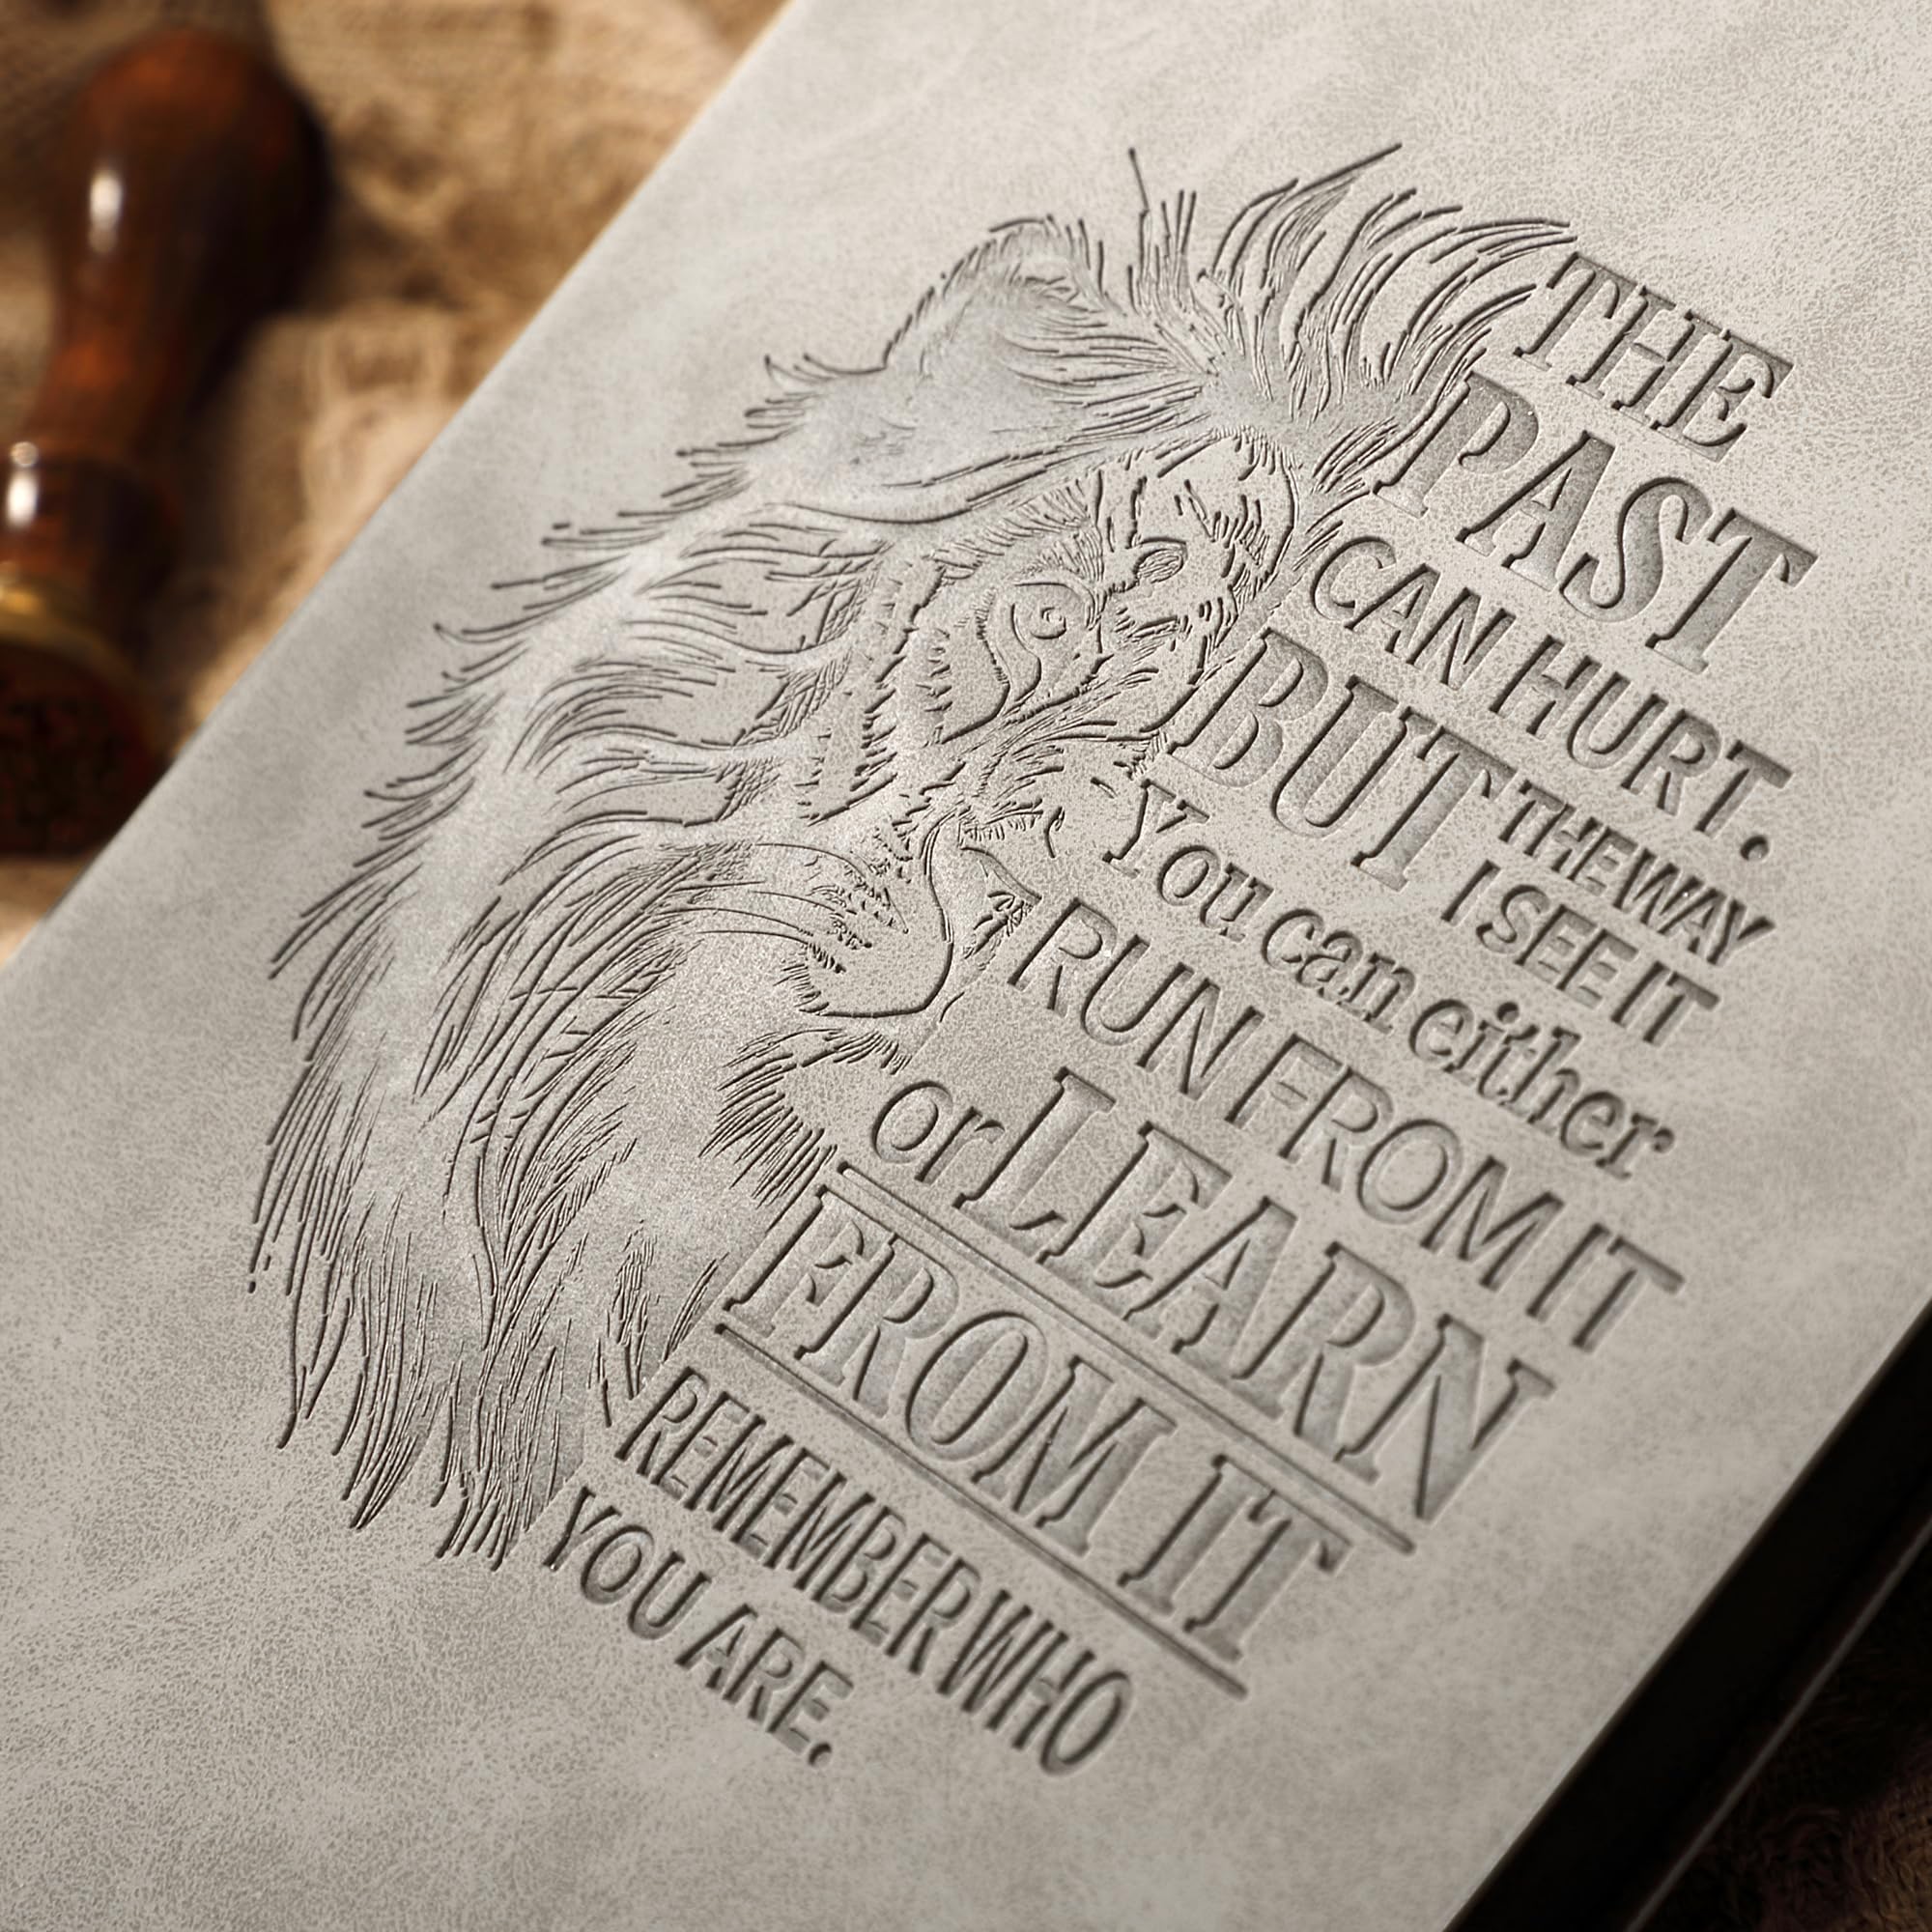 THE
PAST
CAN HURT.
BUT THE WAY
I SEE IT
You can either
RUN FROM IT
or LEARN
FROM IT
REMEMBER WHO
YOU ARE.